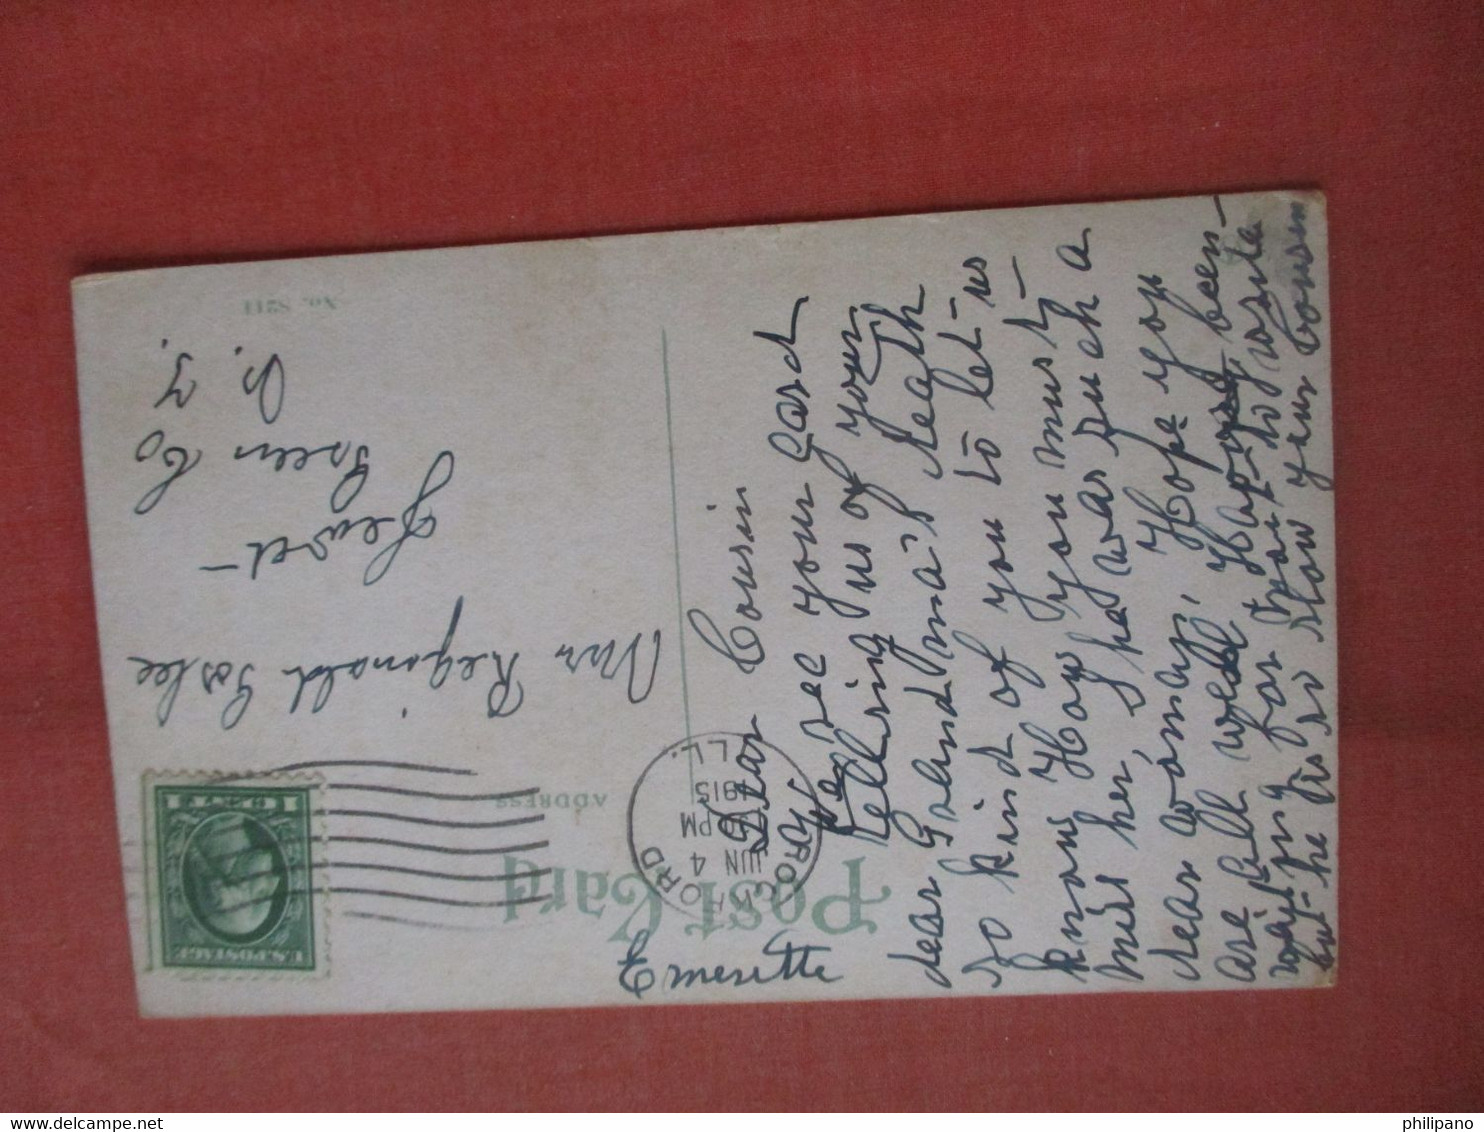 Post Card
ADDRESS
No. S211
U.S. POSTAGE
1 CENT 1
ROCKFORD
JUN 4
PM
1915
ILL.
Mr Reginald
Jewet
Green Co
N. Y.
Dear Cousin
We rec your card
telling us of your
dear Grandma's death
so kind of you to let us
know How you must
miss her, she was such a
dear woman, Hope you
are all well, Have been
for to write
he is so slow your cousin
Ernesette
philipano